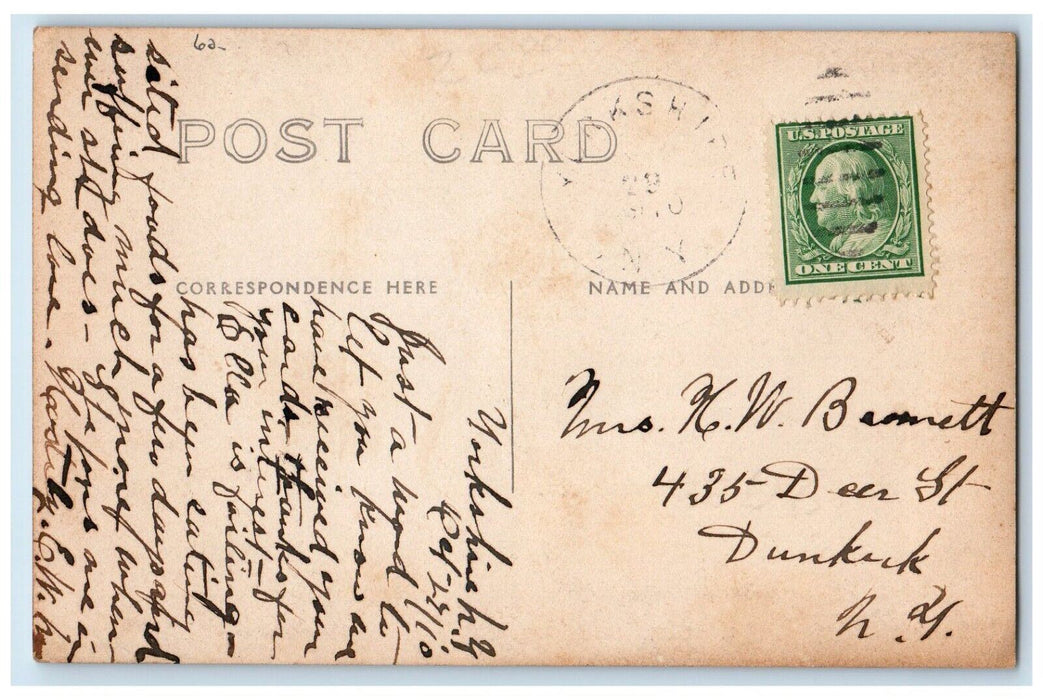 62
POST CARD
YORKSHIRE
29
N.Y.
U.S. POSTAGE
ONE CENT
CORRESPONDENCE HERE
NAME AND ADD
Yorkshire N.Y
Oct-29/10
Just a word to
let you know we
have received your
cards. Thanks for
your interest-
Ella is failing-
has been eating
solid foods for a few days and
suffering much of
ever she does-
sending love.
Mrs. H. W. Bennett
435 Deer St
Dunkirk
N.Y.